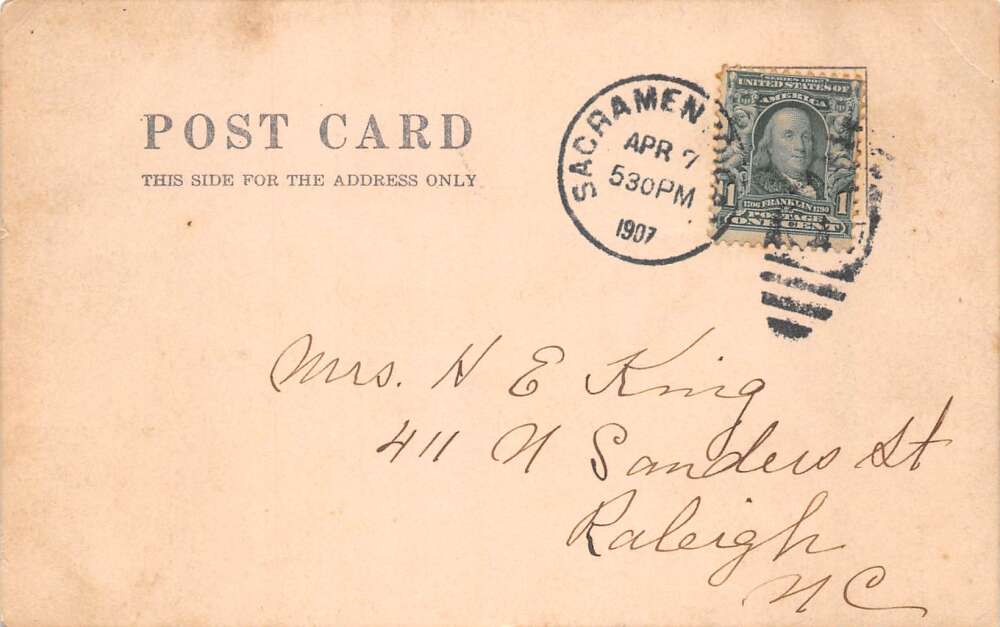 POST CARD
THIS SIDE FOR THE ADDRESS ONLY
SACRAMEN
APR 7
530PM
1907
SERIES 1902
UNITED STATES OF
AMERICA
1 1
1706 FRANKLIN 1790
POSTAGE
ONE CENT
Mrs. H E King
411 N Sanders St
Raleigh
NC